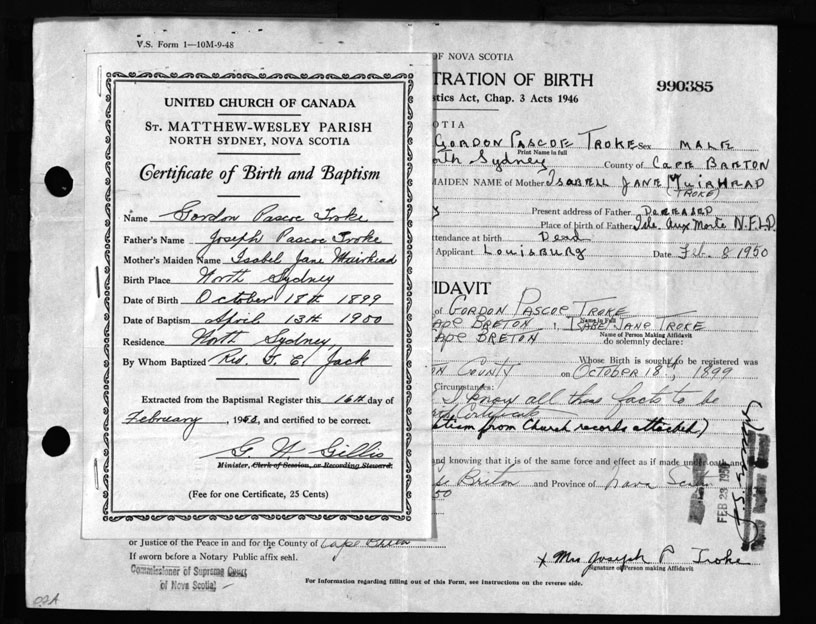 V.S. Form 1—10M-9-48
UNITED CHURCH OF CANADA
ST. MATTHEW-WESLEY PARISH
NORTH SYDNEY, NOVA SCOTIA
Certificate of Birth and Baptism
Name Gordon Pascoe Troke
Father's Name Joseph Pascoe Troke
Mother's Maiden Name Isabel Jane Muirhead
Birth Place North Sydney
Date of Birth October 18th 1899
Date of Baptism April 13th 1900
Residence North Sydney
By Whom Baptized Rev. T. C. Jack
Extracted from the Baptismal Register this 16th day of
February, 19 and certified to be correct.
G W Gillis
Minister, Clerk of Session, or Recording Steward.
(Fee for one Certificate, 25 Cents)
OF NOVA SCOTIA
TRATION OF BIRTH
990385
stics Act, Chap. 3 Acts 1946
OTIA
GORDON PASCOE TROKE Sex MALE
Print Name in full
orth Sydney County of CAPE BRETON
MAIDEN NAME of Mother ISABELL JANE (MUIRHEAD
TROKE)
Present address of Father DECEASED
Place of birth of Father Isle Aux Morte N.F.L.D.
ttendance at birth Dead
Applicant LOUISBURG Date Feb. 8 1950
FIDAVIT
of GORDON PASCOE TROKE
Name in Full
APE BRETON I, ISABEL JANE TROKE
Name of Person Making Affidavit
APE BRETON do solemnly declare:
Whose Birth is sought to be registered was
ON COUNTY on OCTOBER 18th, 1899
Circumstances:
I know all these facts to be
Certificate
ptism from Church records attached)
and knowing that it is of the same force and effect as if made under oath and
pe Briton and Province of Nova Scotia
50
FEB 23
or Justice of the Peace in and for the County of Cape Briton
If sworn before a Notary Public affix seal.
Commissioner of Supreme Court
of Nova Scotia
x Mrs Joseph P Troke
Signature of Person making Affidavit
For Information regarding filling out of this Form, see instructions on the reverse side.